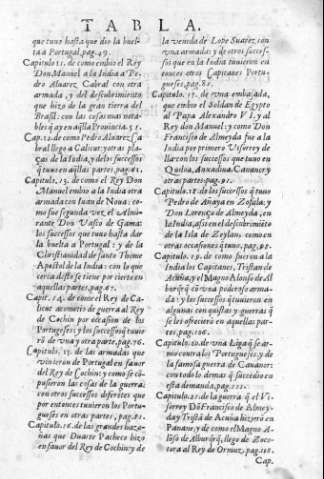 TABLA.
que tuuo hasta que dio la buel-
ta a Portugal, pag. 49.
Capitulo 11. de como embio el Rey
Don Manuel a la India a Pe-
dro Aluarez Cabral con otra
armada, y del descubrimiento
que hizo de la gran tierra del
Brasil: con las cosas mas nota-
bles q̃ ay en aq̃lla Prouincia. 51.
Cap. 12. de como Pedro Aluarez Ca
bral llego a Calicut: y otras pla-
ças de la India, y de los successos
q̃ tuuo en aq̃llas partes, pag.
Capitulo. 13. de como el Rey Don
Manuel embio a la India otra
armada con Iuan de Noua: co-
mo fue segunda vez, el Almi-
rante Don Vasco de Gama:
los successos que tuuo hasta dar
la buelta a Portugal: y de la
Christiandad de santo Thome
Apostol de la India: con lo que
cerca desto se tiene por cierto en
aquellas partes, pag. 67.
Capit. 14. de como el Rey de Ca-
licut acometio de guerra al Rey
de Cochin por ocasion de los
Portugeses: y los successos q̃ tuuie
rõ de vna y otra parte, pag. 76.
Capitulo, 15. de las armadas que
vinieron de Portugal en fauor
del Rey de Cochin: y como se cõ-
pusieron las cosas de la guerra:
con otros successos diferẽtes que
por entonces tuuieron los Portu-
gueses en otras partes, pag. 81.
Capitulo. 16. de las grandes haza-
ñas que Duarte Pacheco hizo
en fauor del Rey de Cochin: y de
la venida de Lope Suarez con
vna armada: y de otros succes-
sos que en la India tuuieron en
tonces otros Capitanes Portu-
gueses, pag. 85.
Capitulo. 17. de vna embajada,
que embio el Soldan de Egypto
al Papa Alexandro VI. y al
Rey don Manuel: y como Don
Francisco de Almeyda fue a la
India por primero Visorrey de
lla: con los successos que tuuo en
Quiloa, Anxadiua, Cananor: y
otras partes: pag. 91.
Capitulo. 18. de los successos q̃ tuuo
Pedro de Añaya en Zofala: y
Don Lorenço de Almeyda, en
la India, assi en el descubrimiẽto
de la Isla de Zeylan: como en
otras occasiones q̃ tuuo, pag.
Capitulo. 19. de como fueron a la
India los Capitanes, Tristan de
Acuña, y el Magno Alonso de Al
burq̃rq̃ cõ vna poderosa arma-
da: y los successos q̃ tuuieron en
algunas conquistas y guerras q̃
se les ofrecierõ en aquellas par-
tes. pag. 106.
Capitulo. 20. de vna Liga q̃ se ar-
mo contra los Portugueses: y de
la famosa guerra de Cananor:
con todo lo demas q̃ sucedio en
esta demanda, pag. 111.
Capitulo. 21. de la guerra q̃ el Vi-
sorrey Dõ Francisco de Almey-
da y Tristã de Acuña hizierõ en
Panane: y de como el Magno A-
lõso de Alburq̃rq̃, llego de Zoco-
tora al Rey de Ormuz, pag. 118.
Cap.